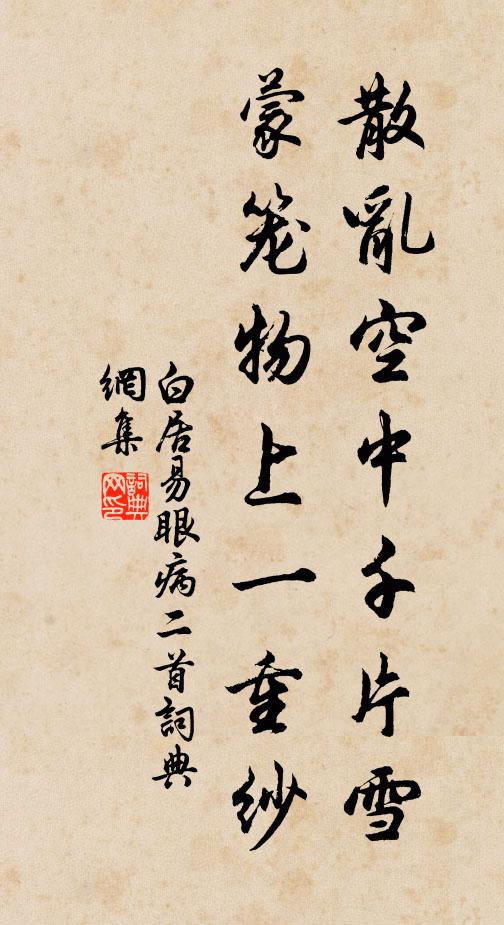 散亂空中千片雪
蒙笼物上一重紗
白居易眼病二首詞典
網集
詞典
网印